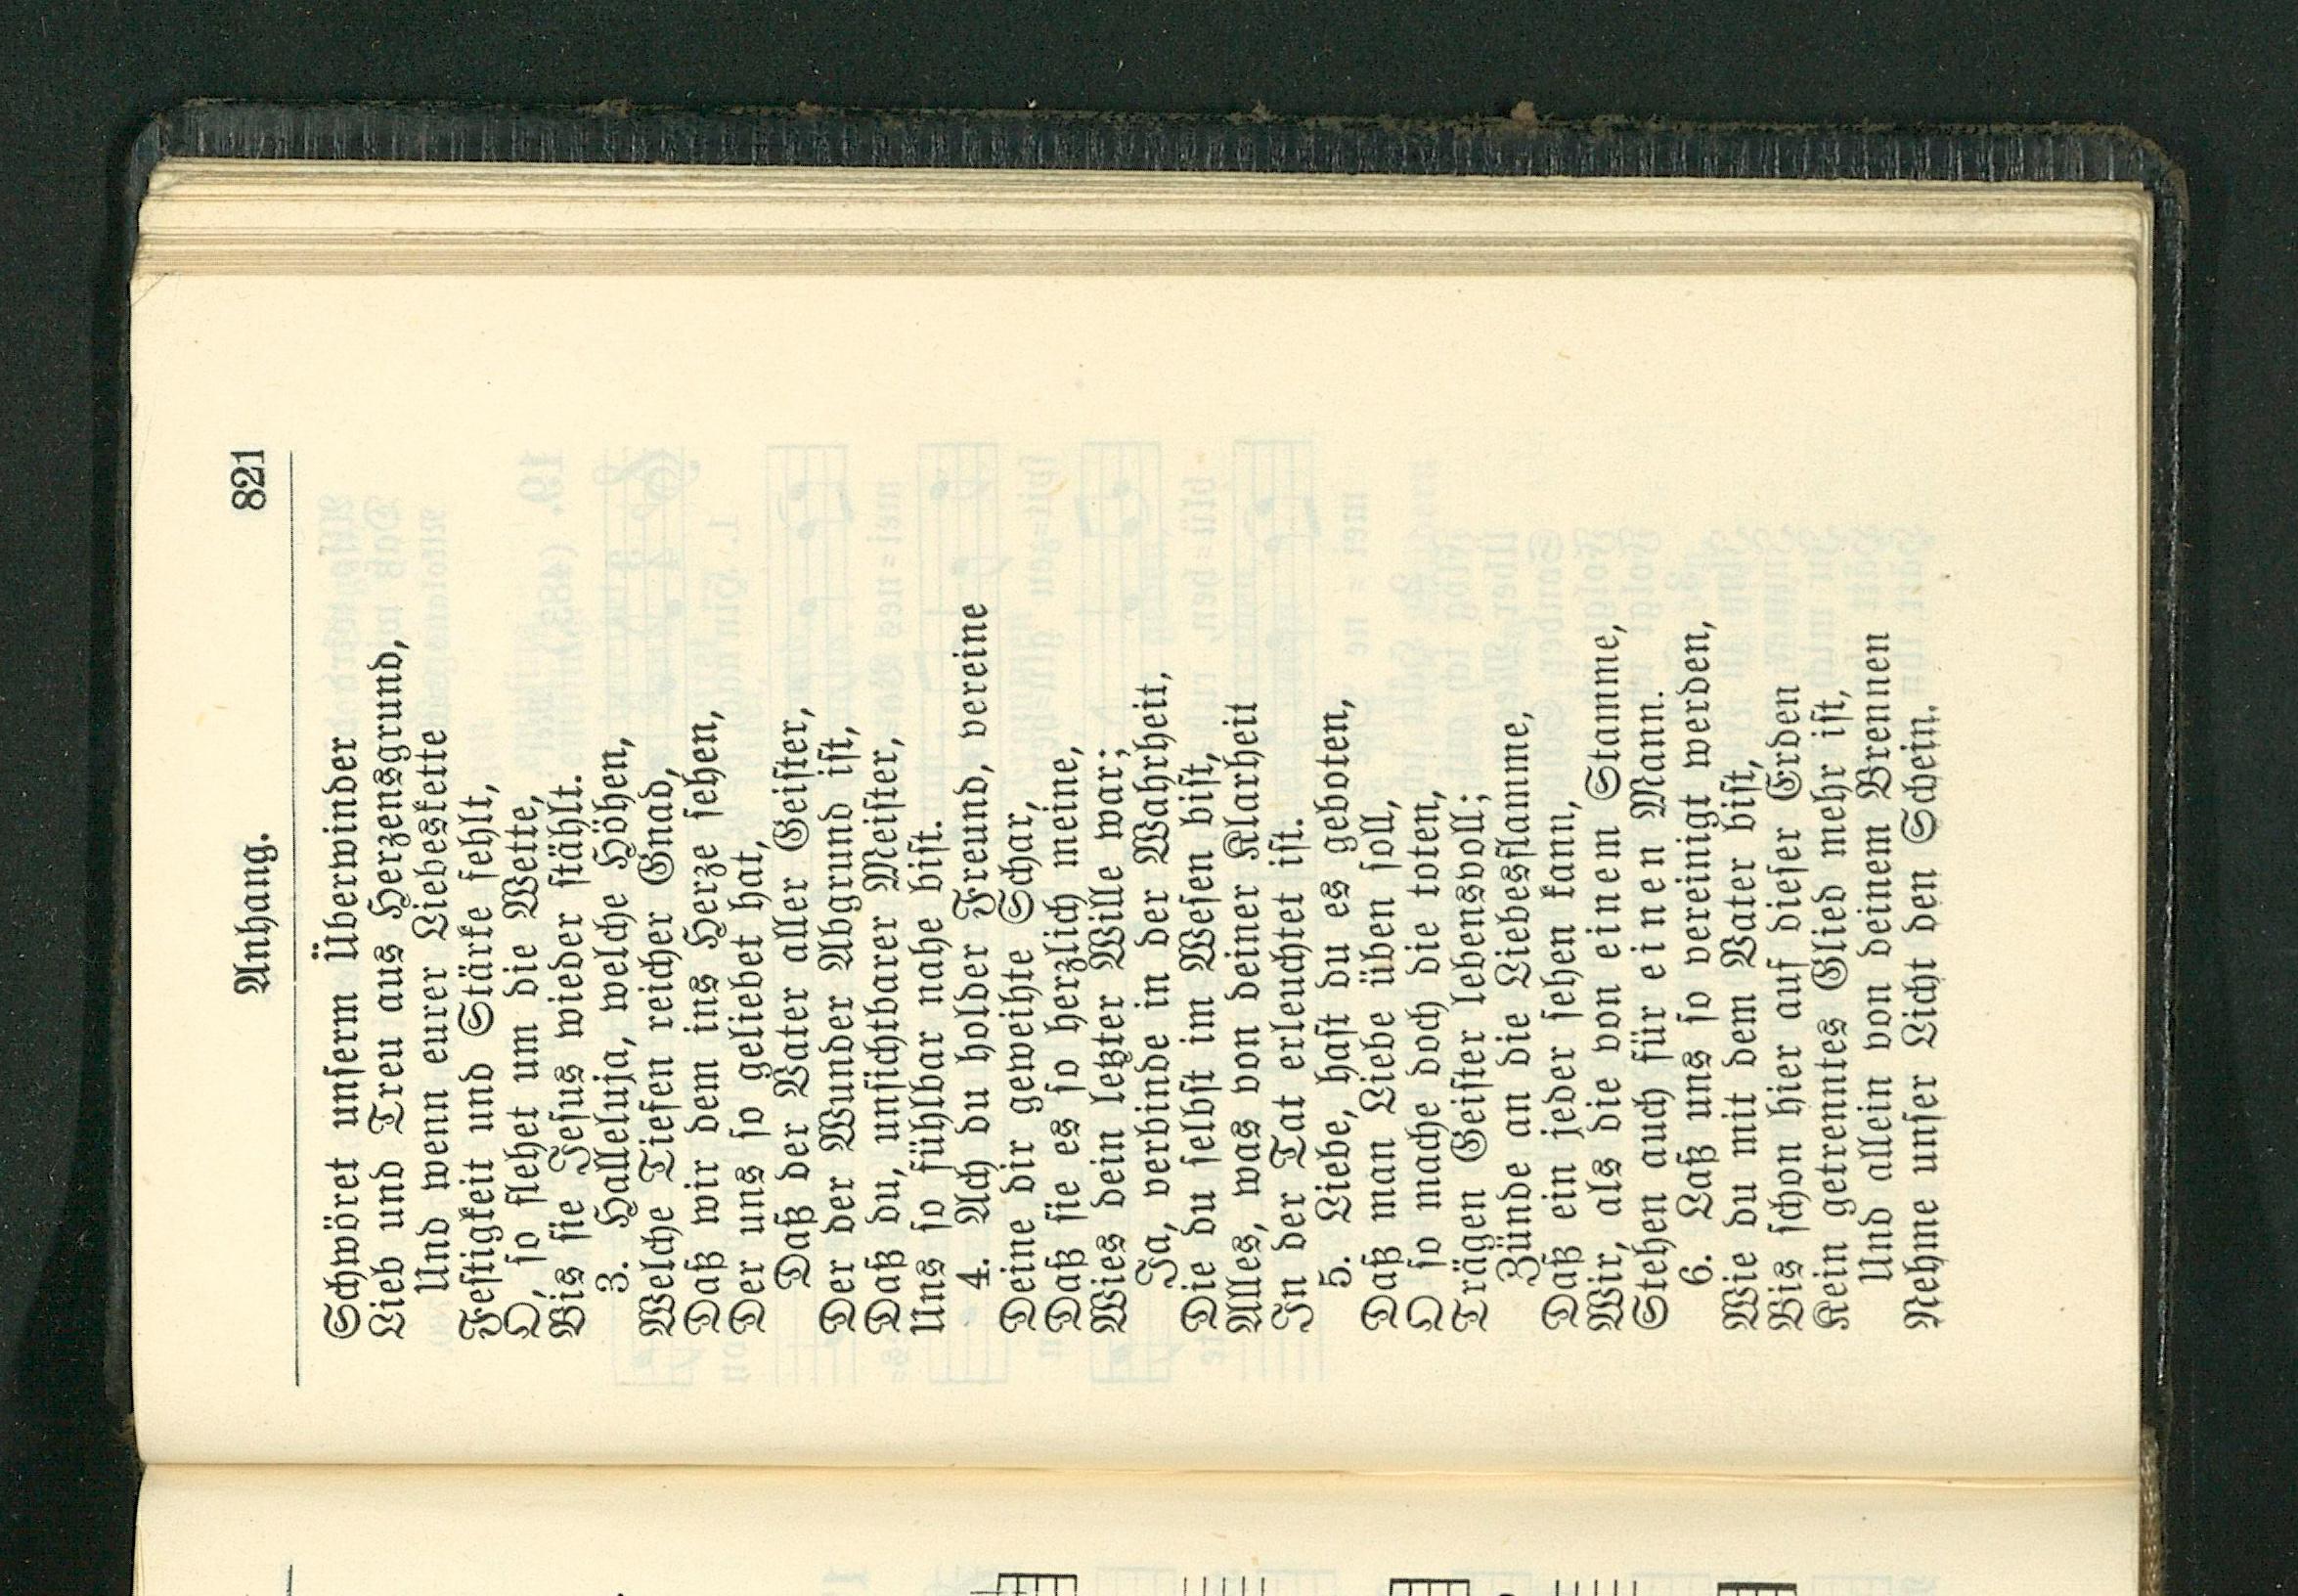 Anhang. 821
Schwöret unserm Überwinder
Lieb und Treu aus Herzensgrund,
Und wenn eurer Liebeskette
Festigkeit und Stärke fehlt,
O, so flehet um die Wette,
Bis sie Jesus wieder stählt.
3. Halleluja, welche Höhen,
Welche Tiefen reicher Gnad,
Daß wir dem ins Herze sehen,
Der uns so geliebet hat,
Daß der Vater aller Geister,
Der der Wunder Abgrund ist,
Daß du, unsichtbarer Meister,
Uns so fühlbar nahe bist.
4. Ach du holder Freund, vereine
Deine dir geweihte Schar,
Daß sie es so herzlich meine,
Wies dein letzter Wille war;
Ja, verbinde in der Wahrheit,
Die du selbst im Wesen bist,
Alles, was von deiner Klarheit
In der Tat erleuchtet ist.
5. Liebe, hast du es geboten,
Daß man Liebe üben soll,
O so mache doch die toten,
Trägen Geister lebensvoll;
Zünde an die Liebesflamme,
Daß ein jeder sehen kann,
Wir, als die von einem Stamme,
Stehen auch für einen Mann.
6. Laß uns so vereinigt werden,
Wie du mit dem Vater bist,
Bis schon hier auf dieser Erden
Kein getrenntes Glied mehr ist,
Und allein von deinem Brennen
Nehme unser Licht den Schein.